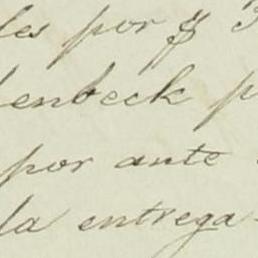 les por
enbeck p
por ante
la entrega